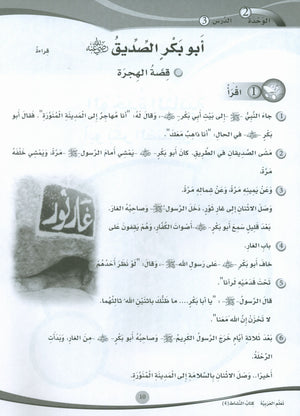 الوحدة 2 الدرس 3
أبو بَكْرٍ الصِّدِّيقُ رضي الله عنه
قراءة
قِصَّةُ الهِجْرَةِ
1 اقْرَأْ
1 جاءَ النَّبِيُّ ﷺ إلى بَيْتِ أَبِي بَكْرٍ، وَقالَ لَهُ: "أَنا مُهاجِرٌ إلى المَدِينَةِ المُنَوَّرَةِ". فَقالَ أَبو
بَكْرٍ في الحالِ: "أَنا ذاهِبٌ مَعَكَ".
2 مَشى الصَّدِيقانِ في الطَّرِيقِ. كانَ أَبو بَكْرٍ يَمْشي أَمامَ الرَّسولِ ﷺ مَرَّةً، وَيَمْشي خَلْفَهُ
مَرَّةً.
3 وَعَنْ يَمِينِهِ مَرَّةً، وَعَنْ شِمالِهِ مَرَّةً.
وَصَلَ الاثْنانِ إلى غارِ ثَوْرٍ. دَخَلَ الرَّسولُ ﷺ وَصاحِبُهُ الغارَ.
4 بَعْدَ قَلِيلٍ سَمِعَ أَبو بَكْرٍ أَصْواتَ الكُفّارِ، وَهُمْ يَقِفونَ عَلى
بابِ الغارِ.
5 خافَ أَبو بَكْرٍ عَلى رَسولِ اللهِ ﷺ وَقالَ: "لَوْ نَظَرَ أَحَدُهُمْ
تَحْتَ قَدَمَيْهِ لَرَآنا".
قالَ الرَّسولُ ﷺ: "يا أَبا بَكْرٍ... ما ظَنُّكَ بِاثْنَيْنِ اللهُ ثالِثُهُما.
لا تَحْزَنْ إِنَّ اللهَ مَعَنا".
6 بَعْدَ ثَلاثَةِ أَيّامٍ خَرَجَ الرَّسولُ الكَرِيمُ ﷺ وَصاحِبُهُ أَبو بَكْرٍ مِنَ الغارِ، وَبَدَأَتِ
الرِّحْلَةُ.
أَخيرًا.. وَصَلَ الاثْنانِ بِالسَّلامَةِ إلى المَدِينَةِ المُنَوَّرَةِ.
غار ثور
10
تعلم العربية كتاب النشاط (4)